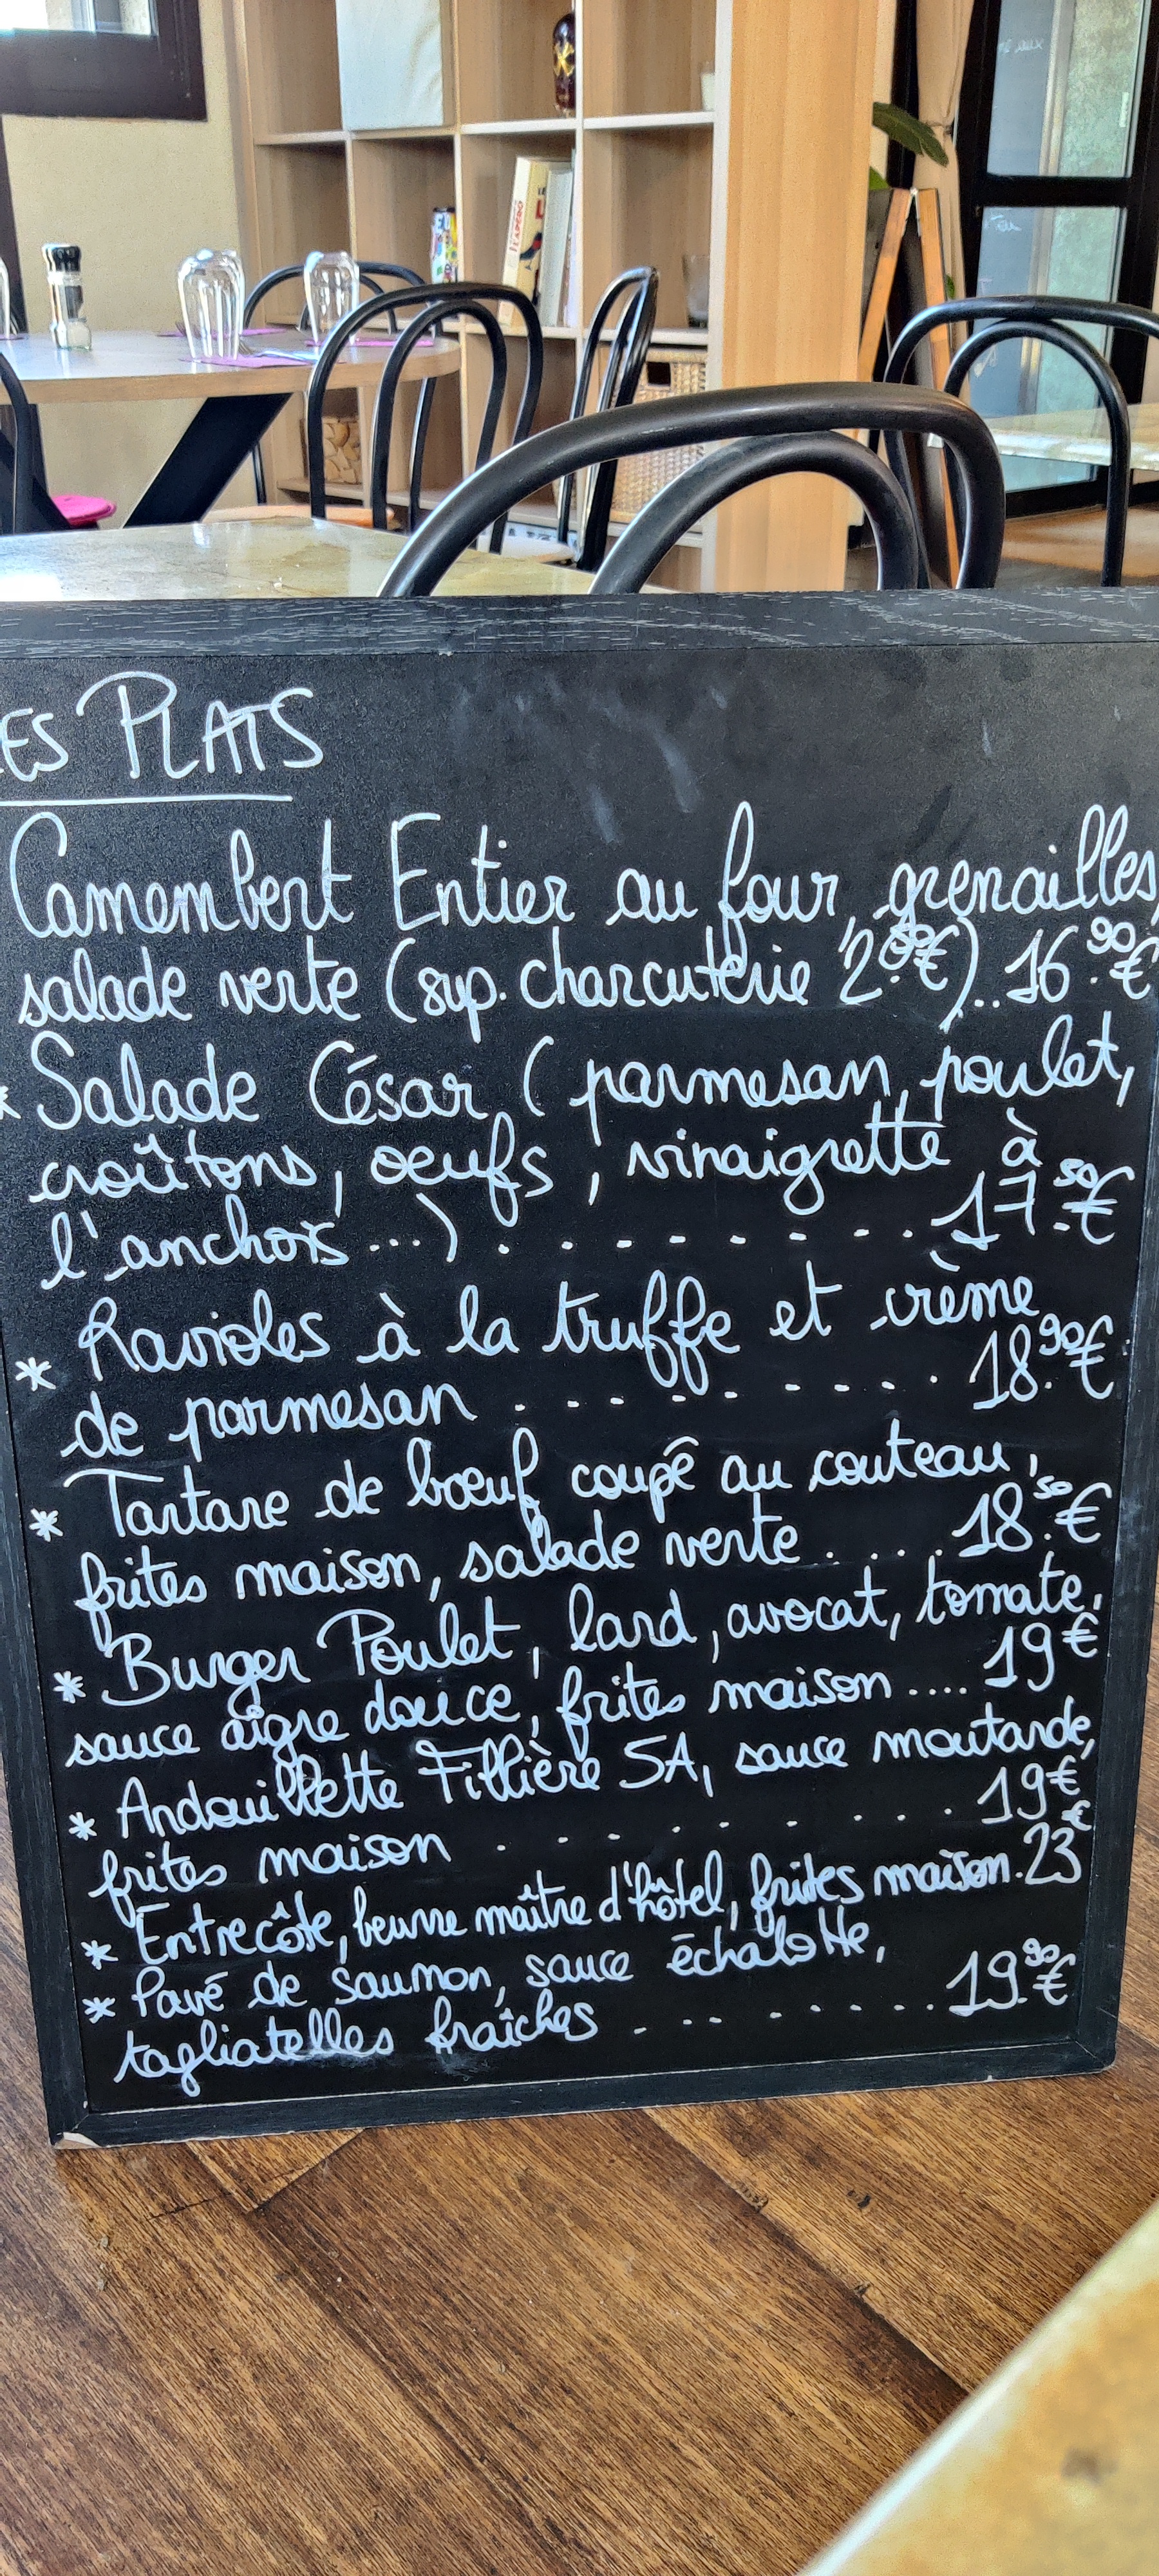 L'APÉRO
ES PLATS
Camembert Entier au four, grenailles,
salade verte (sup. charcuterie 2€)..16.90€
* Salade César (parmesan, poulet,
croûtons, oeufs, vinaigrette à
l'anchois...) . . . . . . . . 17.50€
* Ravioles à la truffe et crème
de parmesan . . . . . . . . 18.90€
* Tartare de bœuf coupé au couteau,
frites maison, salade verte . . . . 18.50€
* Burger Poulet, lard, avocat, tomate,
sauce aigre douce, frites maison .... 19€
* Andouillette Fillière 5A, sauce moutarde,
frites maison . . . . . . . . 19€
* Entrecôte, beurre maître d'hôtel, frites maison. 23€
* Pavé de saumon, sauce échalotte,
tagliatelles fraîches . ... . . ... 19.90€